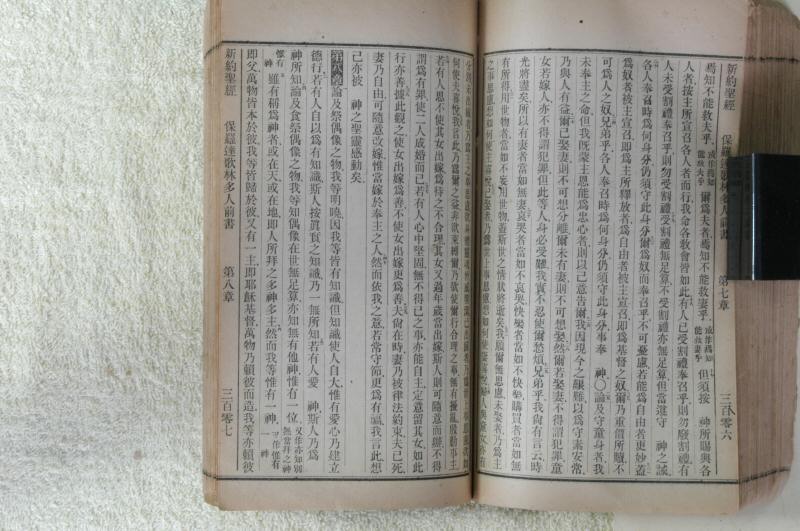 新約聖經　保羅達歌林多人前書　第七章　三百零六
焉知不能救夫乎或作焉知能救夫乎爾爲夫者焉知不能救妻乎或作焉知能救妻乎但須按　神所賜與各
人者按主所宣召各人者而行我命各敎會皆如此有人已受割禮奉召乎則勿廢割禮有
人未受割禮奉召乎則勿受割禮受割禮無足算不受割禮亦無足算但當遵守　神之誡
各人奉召時爲何身分仍須守此身分爾爲奴而奉召乎不可憂慮若能爲自由者更妙蓋
爲奴者被主宣召即爲主所釋放者爲自由者被主宣召即爲基督之奴爾乃重價所贖不
可爲人之奴兄弟乎各人奉召時爲何身分仍須守此身分事奉　神〇論及守童身者我
未奉主之命但我旣蒙主恩能爲忠心者則以己意告爾我因現今之艱難以爲守素安常
乃與人有益爾已娶妻則不可想分離爾未有妻則不可想娶妻然爾若娶妻不得謂犯罪童
女若嫁人亦不得謂犯罪但此等人身必受難我實不忍使爾愁煩兄弟乎我尙有言云時
光將盡矣所以有妻者當如無妻哀哭者當如不哀哭快樂者當如不快樂購買者當如無
有所得用世物者當如不妄用世物蓋斯世之情狀將逝矣我願爾無思慮未娶者乃爲主
何使夫喜悅我言此乃爲爾之益非欲束縛爾乃欲使爾行合理之事無有擾亂慇勤事主
若有人思不使其女出嫁爲待之不合理其女又過年歲當出嫁斯人則可隨意而辦不得
謂爲有罪使二人成婚而已若有人心中堅固無不得已之事亦能自主定意留其女如此
行亦善據此觀之使女出嫁爲善不使女出嫁更爲善夫尙在時妻乃被律法約束夫已死
妻乃自由可隨意改嫁惟當嫁於奉主之人然而依我之意若常守節更爲有福我言此想
己亦被　神之聖靈感動矣
第八章論及祭偶像之物我等明曉因我等皆有知識但知識使人自大惟有愛心乃建立
德行若有人自以爲有知識斯人按眞實之知識乃一無所知若有人愛　神斯人乃爲
神所知論及食祭偶像之物我等知偶像在世無足算亦知無有他神惟有一位
神雖有稱爲神者或在天或在地即人所拜之多神多主然而我等惟有一神
即父萬物皆本於彼我等皆歸於彼又有一主即耶穌基督萬物乃賴彼而造我等亦賴彼
新約聖經　保羅達歌林多人前書　第八章　三百零七